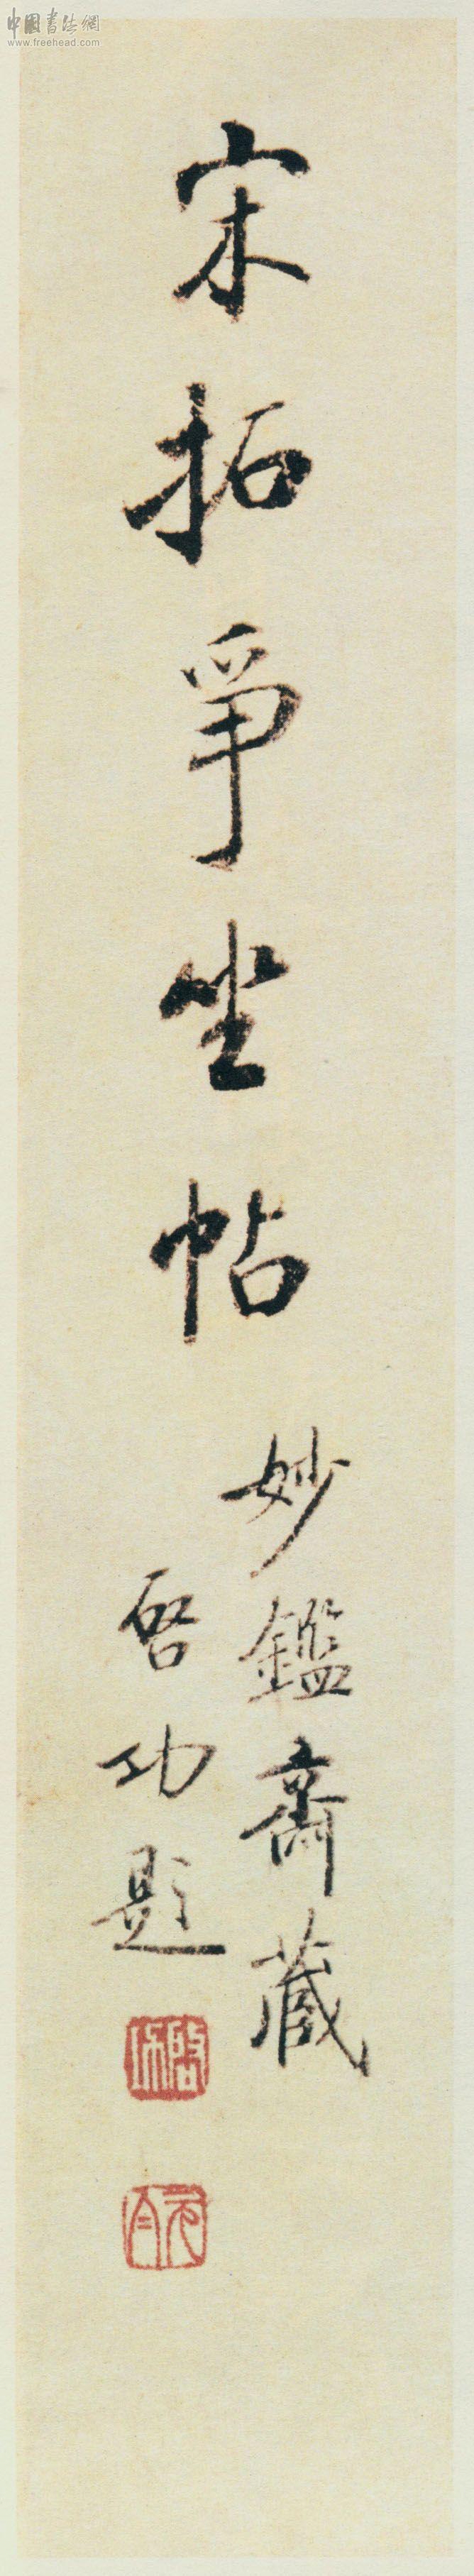 中國書法網
www.freehead.com
宋拓爭坐帖
妙鑑齋藏
啓功題
啓功
元白